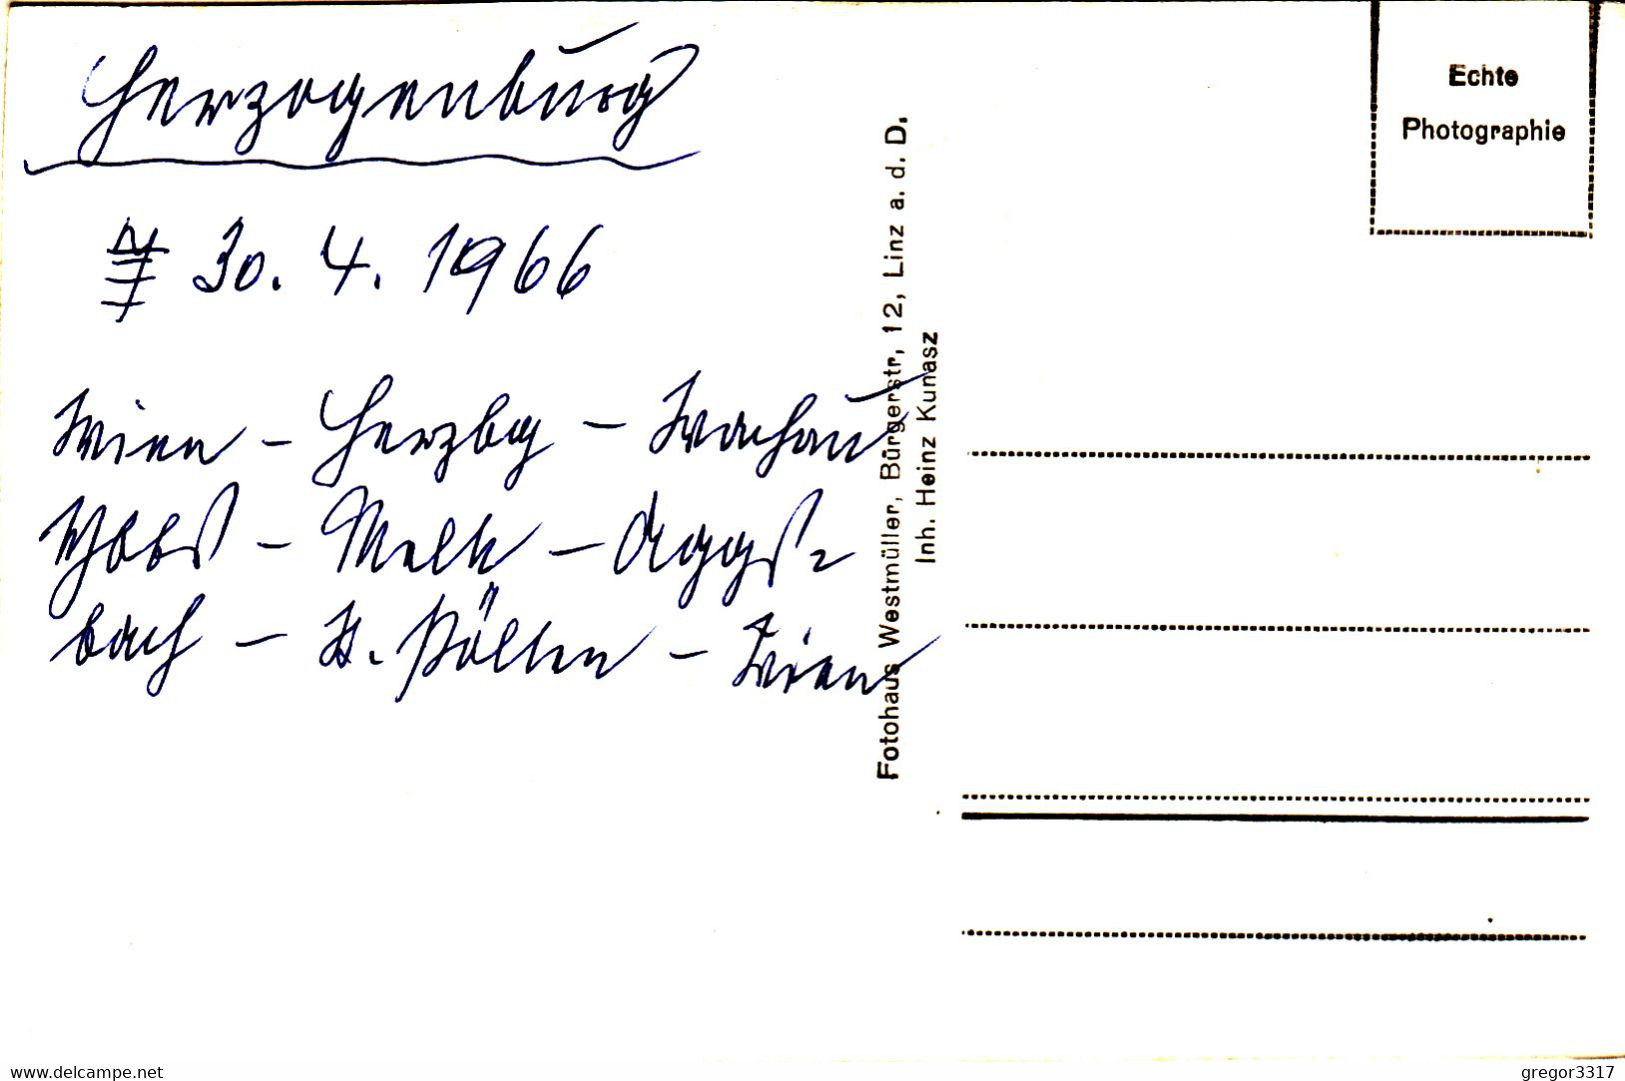 Herzogenburg
30. 4. 1966
Wien - Herzbg - Wachau
Ybbs - Melk - Aggs-
bach - St. Pölten - Wien
Fotohaus Westmüller, Bürgerstr, 12, Linz a. d. D.
Inh. Heinz Kunasz
Echte
Photographie
www.delcampe.net
gregor3317